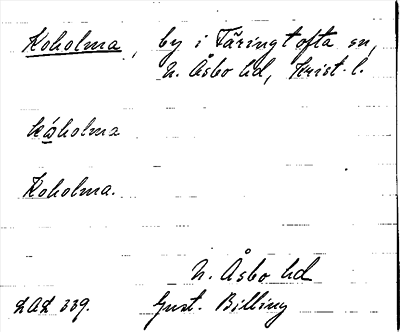 Koholma, by i Färingtofta sn,
N. Åsbo hd, Krist. l.
kåholma
Koholma.
N. Åsbo hd
LAL 339. Gust. Billing